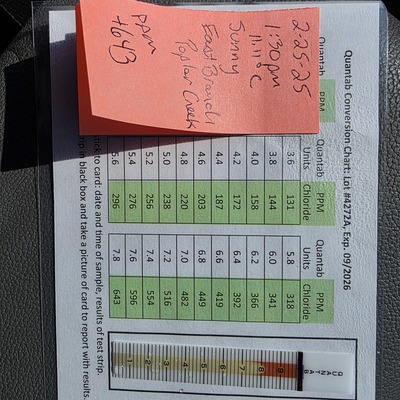 Quantab Conversion Chart: Lot #4272A, Exp. 09/2026
Quantab PPM Quantab PPM Quantab PPM
Units Chloride Units Chloride
3.6 131 5.8 318
3.8 144 6.0 341
4.0 158 6.2 366
4.2 172 6.4 392
4.4 187 6.6 419
4.6 203 6.8 449
4.8 220 7.0 482
5.0 238 7.2 516
5.2 256 7.4 554
5.4 276 7.6 596
5.6 296 7.8 643
2-25-25
1:30 pm
11.11°C
Sunny
East Branch
Poplar Creek
PPM
+643
to card: date and time of sample, results of test strip.
in black box and take a picture of card to report with results.
QUANTAB
9
8
7
6
5
4
3
2
1